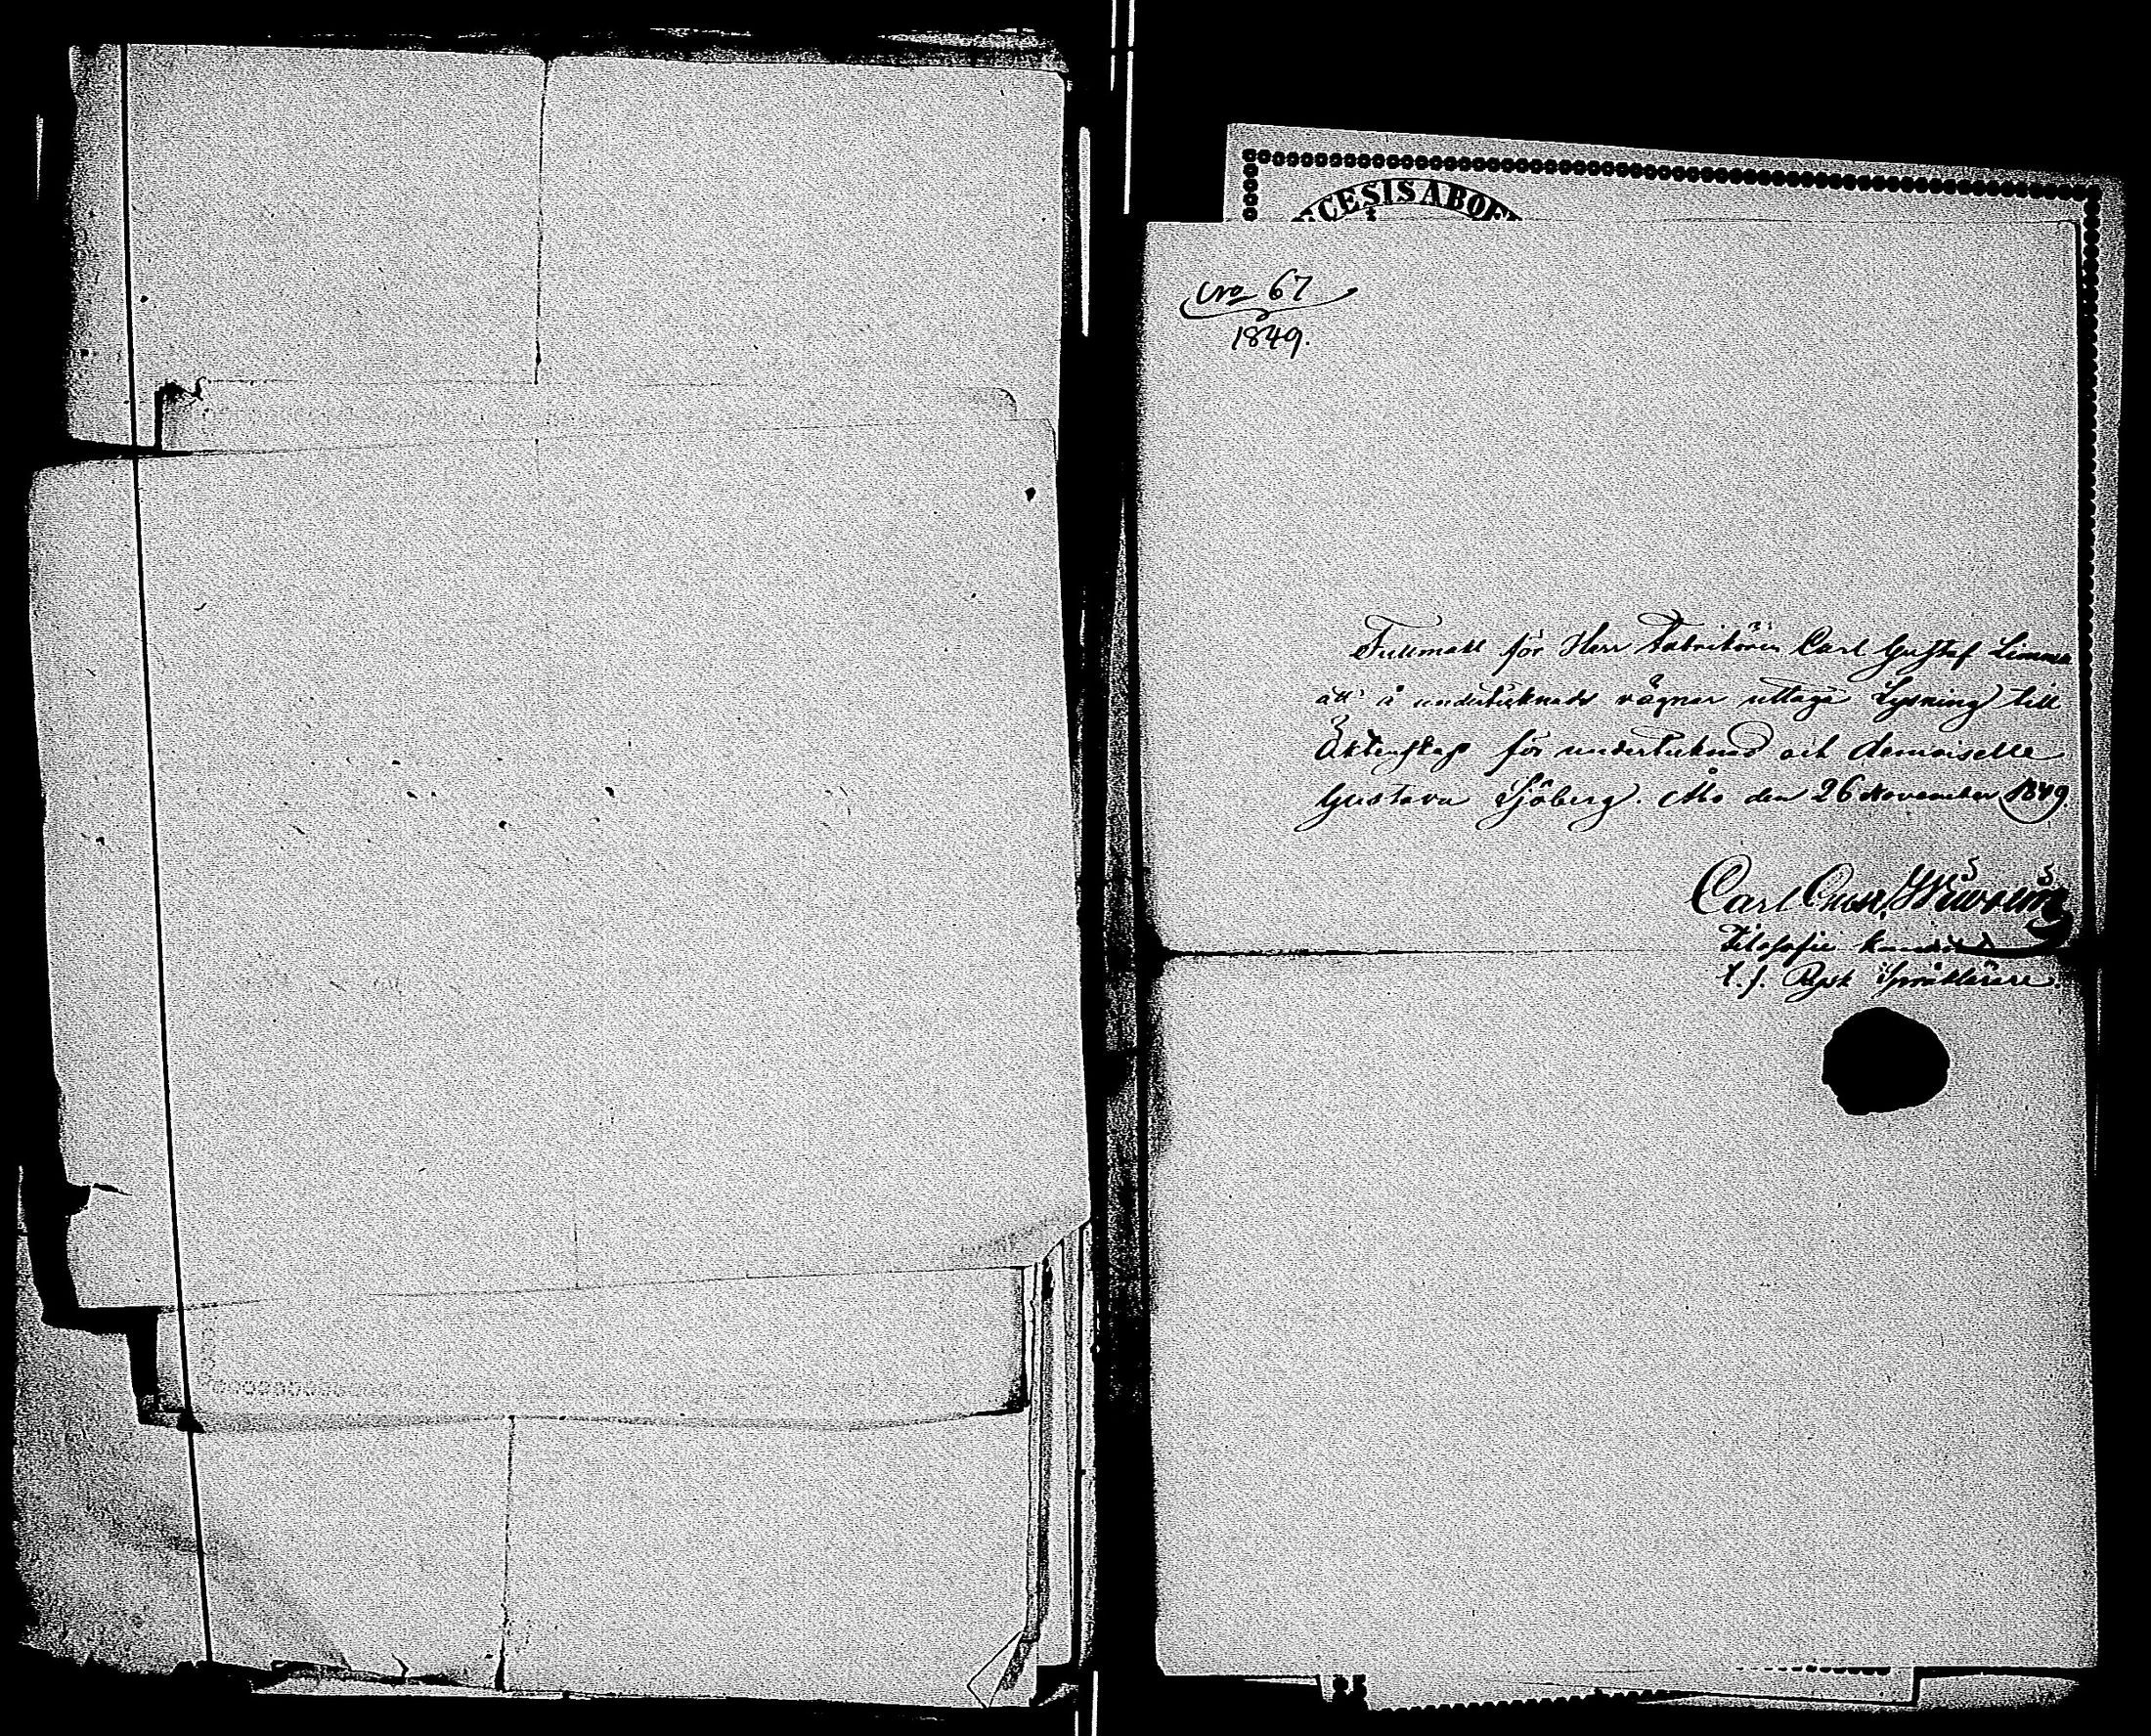 CESIS ABOE
No 67
1849.
Fullmakt för Herr Fabrikören Carl Gustaf
att å undertecknads vägnar uttaga Lysning till
Äktenskap för undertecknad och demoiselle
Gustava Sjöberg. Åbo den 26 November 1849
Carl
Filosofie kandidat
t. f. Rysk Språklärare.